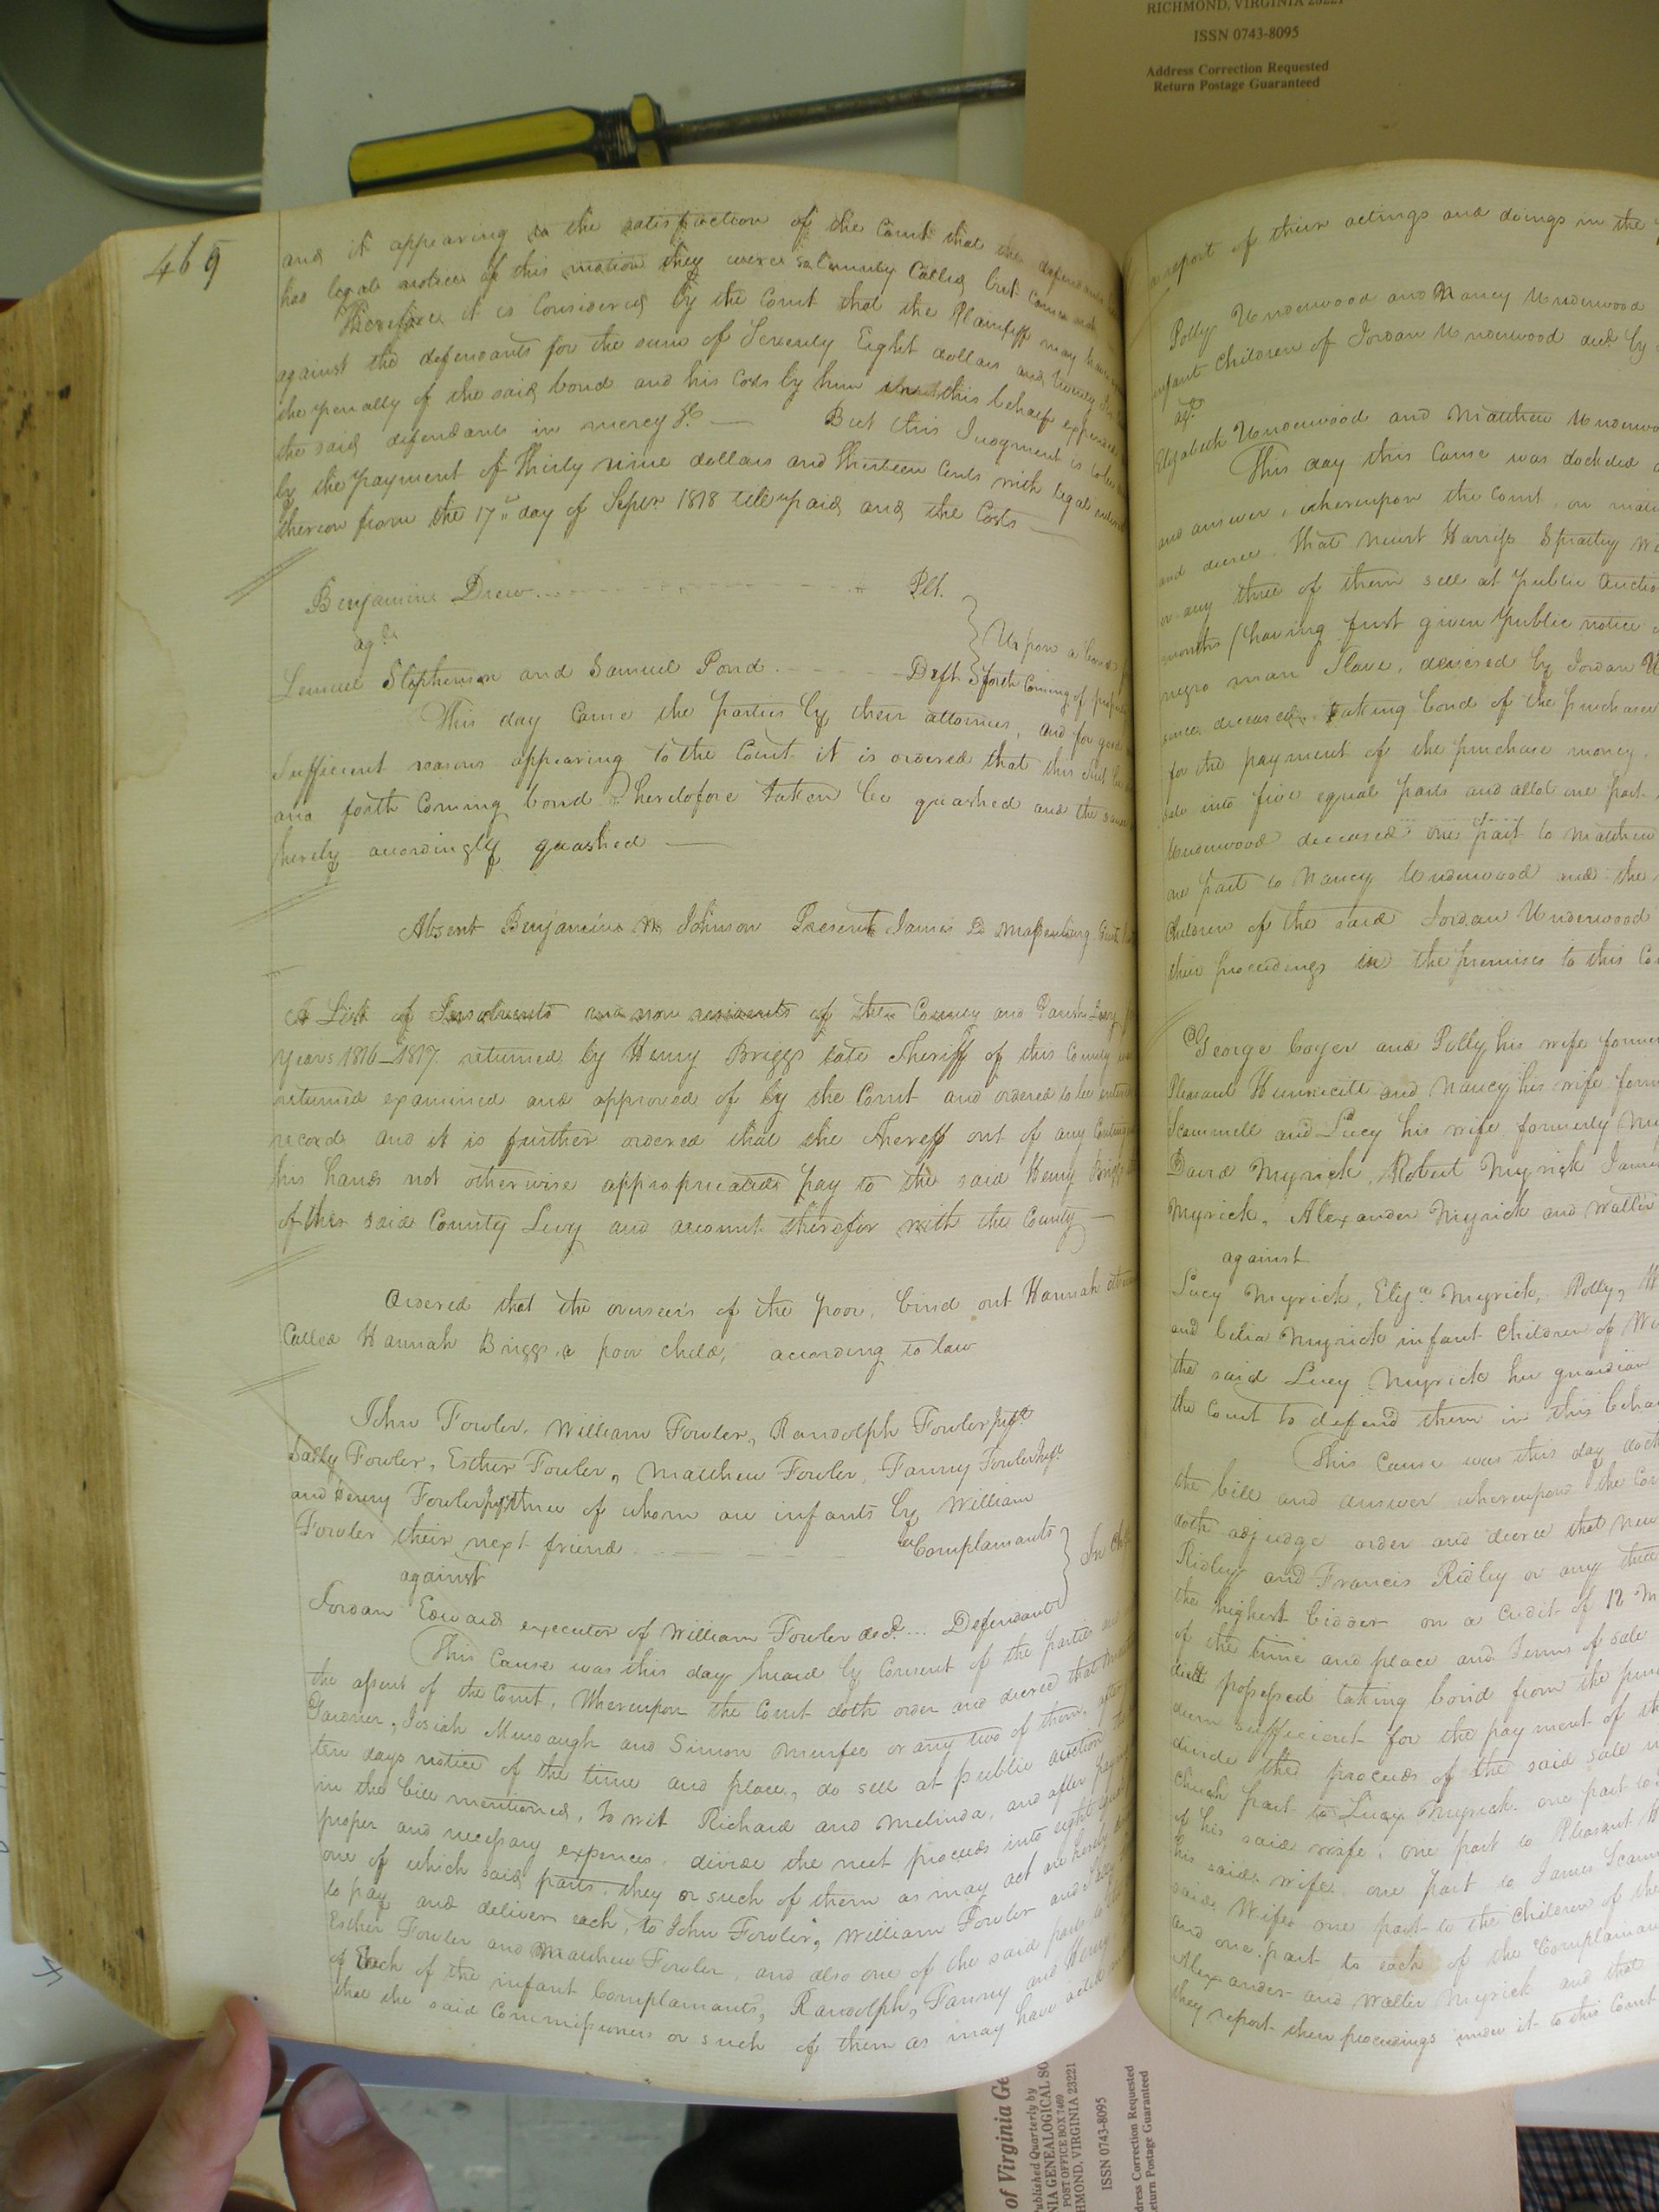 RICHMOND, VIRGINIA 23221
ISSN 0743-8095
Address Correction Requested
Return Postage Guaranteed
469
and it appearing to the satisfaction of the Court that the defendants
had legal notice of this motion they were solemnly Called but came not
Therefore it is Considered by the Court that the Plaintiff may
against the defendants for the sum of Seventy Eight dollars and twenty
the penalty of the said bond and his Costs by him in this behalf expended
the said defendants in mercy &c — But this Judgment is to be
by the payment of thirty nine dollars and thirteen Cents with legal
thereon from the 17th day of Septr 1818 till paid and the Costs —
Benjamine Drew Plt.
agst
Lemuel Stephenson and Samuel Pond Deft
Upon a bond
forth Coming of
This day Came the parties by their attornies, and for good
sufficient reasons appearing to the Court it is ordered that this
and forth Coming bond heretofore taken be quashed and the same
hereby accordingly quashed —
Absent Benjamine W Johnson Present James D Massenburg
A List of Insolvents and non residents of the County and Parish Levy
years 1816–1817 returned by Henry Briggs late Sheriff of this County
returned examined and approved of by the Court and ordered to be
record and it is further ordered that the Shereff out of any
his hands not otherwise appropriated pay to the said Henry Briggs
of the said County Levy and account therefor with the County —
Ordered that the overseers of the poor, bind out Hannah
Called Hannah Briggs a poor child, according to law
John Fowler, William Fowler, Randolph Fowler
Sally Fowler, Esther Fowler, Matthew Fowler, Fanny Fowler
and Henry Fowler three of whom are infants by William
Fowler their next friend Complainants
against
Jordan Edwards executor of William Fowler decd Defendant
This Cause was this day heard by Consent of the parties and
the assent of the Court, Whereupon the Court doth order and decree that
Gardner, Josiah Murdaugh and Simon Murfee or any two of them, after
ten days notice of the time and place, do sell at public auction
in the bill mentioned, to wit Richard and Melinda, and after
proper and necessary expences, divide the neet proceeds into eight
one of which said parts, they or such of them as may act are hereby
to pay and deliver each, to John Fowler, William Fowler and
Esther Fowler and Matthew Fowler, and also one of the said parts to
of Each of the infant Complainants, Randolph, Fanny and Henry
that the said Commissioners or such of them as may have acted
a report of their actings and doings in the
Polly Underwood and Nancy Underwood
infant children of Jordan Underwood decd by
agst
Elizabeth Underwood and Matthew
This day this Cause was docketed
and answer, whereupon the Court, on
and decree, that Newit Harriss Spratley
or any three of them sell at public
months (having first given public notice
negro man Slave, devised by Jordan
since deceased, taking bond of the purchaser
for the payment of the purchase money,
sale into five equal parts and allot one part
Underwood deceased one part to Matthew
one part to Nancy Underwood and the
Children of the said Jordan Underwood
their proceedings in the premises to this
George Boyer and Polly his wife
Pleasant Hunnicutt and Nancy his wife
Scammell and Lucy his wife formerly
David Myrick, Robert Myrick
Myrick, Alexander Myrick and Walter
against
Lucy Myrick, Eliza Myrick, Polly,
and Celia Myrick infant Children of
the said Lucy Myrick her guardian
the Court to defend them in this
This Cause was this day
the bill and answer whereupon the
doth adjudge order and decree that
Ridley and Francis Ridley or any three
the highest bidder on a Credit of 12
of the time and place and Terms of sale
died possessed taking bond from the
deem sufficient for the payment of
divide the proceeds of the said sale
part to Lucy Myrick, one part to
of his said wife, one part to Pleasant
his said wife, one part to James
said Wife one part to the Children of the
and one part to each of the
Alexander and Walter Myrick and that
they report their proceedings under it to this Court
of Virginia
Published Quarterly by
GENEALOGICAL
POST OFFICE BOX 7469
VIRGINIA 23221
ISSN 0743-8095
Address Correction Requested
Return Postage Guaranteed